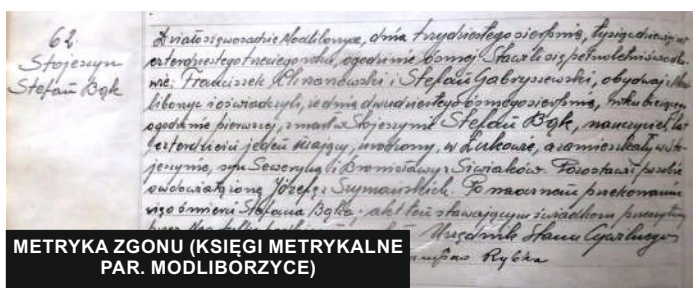 62.
Stojeszyn
Stefan Bąk
Działo się w osadzie Modliborzyce, dnia trzydziestego sierpnia, tysiąc dziewięćset
czterdziestego trzeciego roku, o godzinie ósmej. Stawili się pełnoletni świadko-
wie: Franciszek Klimanowski i Stefan Gabryszewski, obydwaj z Mod-
liborzyc i oświadczyli, że dnia dwudziestego ósmego sierpnia, roku bieżącego
o godzinie pierwszej, zmarł w Stojeszynie Stefan Bąk, nauczyciel, lat
czterdzieści jeden mający, urodzony w Łukowie, a zamieszkały w Sto-
jeszynie, syn Seweryna i Bronisławy z Siwiaków. Pozostawił po sobie
owdowiałą żonę Józefę z Szymańskich. Po naocznem przekonaniu
się o śmierci Stefana Bąka, akt ten stawającym świadkom przeczytany
Urzędnik Stanu Cywilnego
Rybka
METRYKA ZGONU (KSIĘGI METRYKALNE
PAR. MODLIBORZYCE)